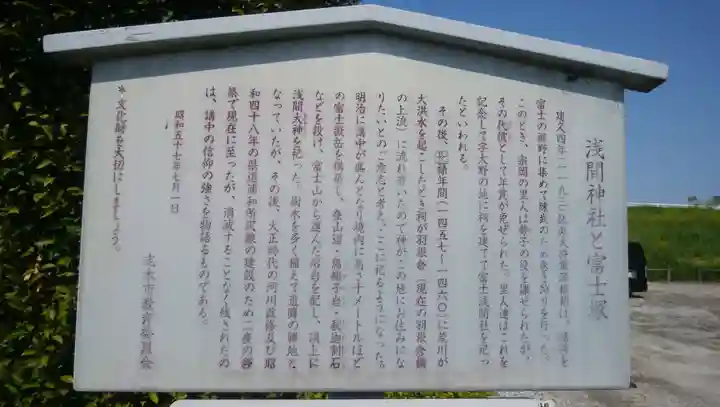 浅間神社と富士塚
建久四年（一一九三）征夷大将軍源頼朝は、諸将を
富士の裾野に集めて練武のため巻き狩りを行った。
このとき、宗岡の里人は勢子の役を課せられたが、
その代償として年貢が免ぜられた。里人達はこれを
記念して字大野の地に祠を建てて富士浅間社を祀っ
たといわれる。
その後、長禄年間（一四五七～一四六〇）に荒川が
大洪水を起こしたとき祠が羽根倉（現在の羽根倉橋
の上流）に流れ着いたので神がこの地にお住みにな
りたいとのご意志と考え、ここに祀るようになった。
明治に講中が盛んとなり境内に高さ十メートルほど
の富士嶽岳を構築し、登山道・烏帽子岩・
などを設け、富士山から運んだ溶岩を配し、頂上に
浅間大神を祀った。樹木を多く植えて造園の勝地と
なっていたが、その後、大正時代の河川改修及び昭
和四十八年の県道浦和所沢線の建設のため二度の移
築で現在に至ったが、消滅することなく残されたの
は、講中の信仰の強さを物語るものである。
昭和五十七年七月一日
＊文化財を大切にしましょう。
志木市教育委員会